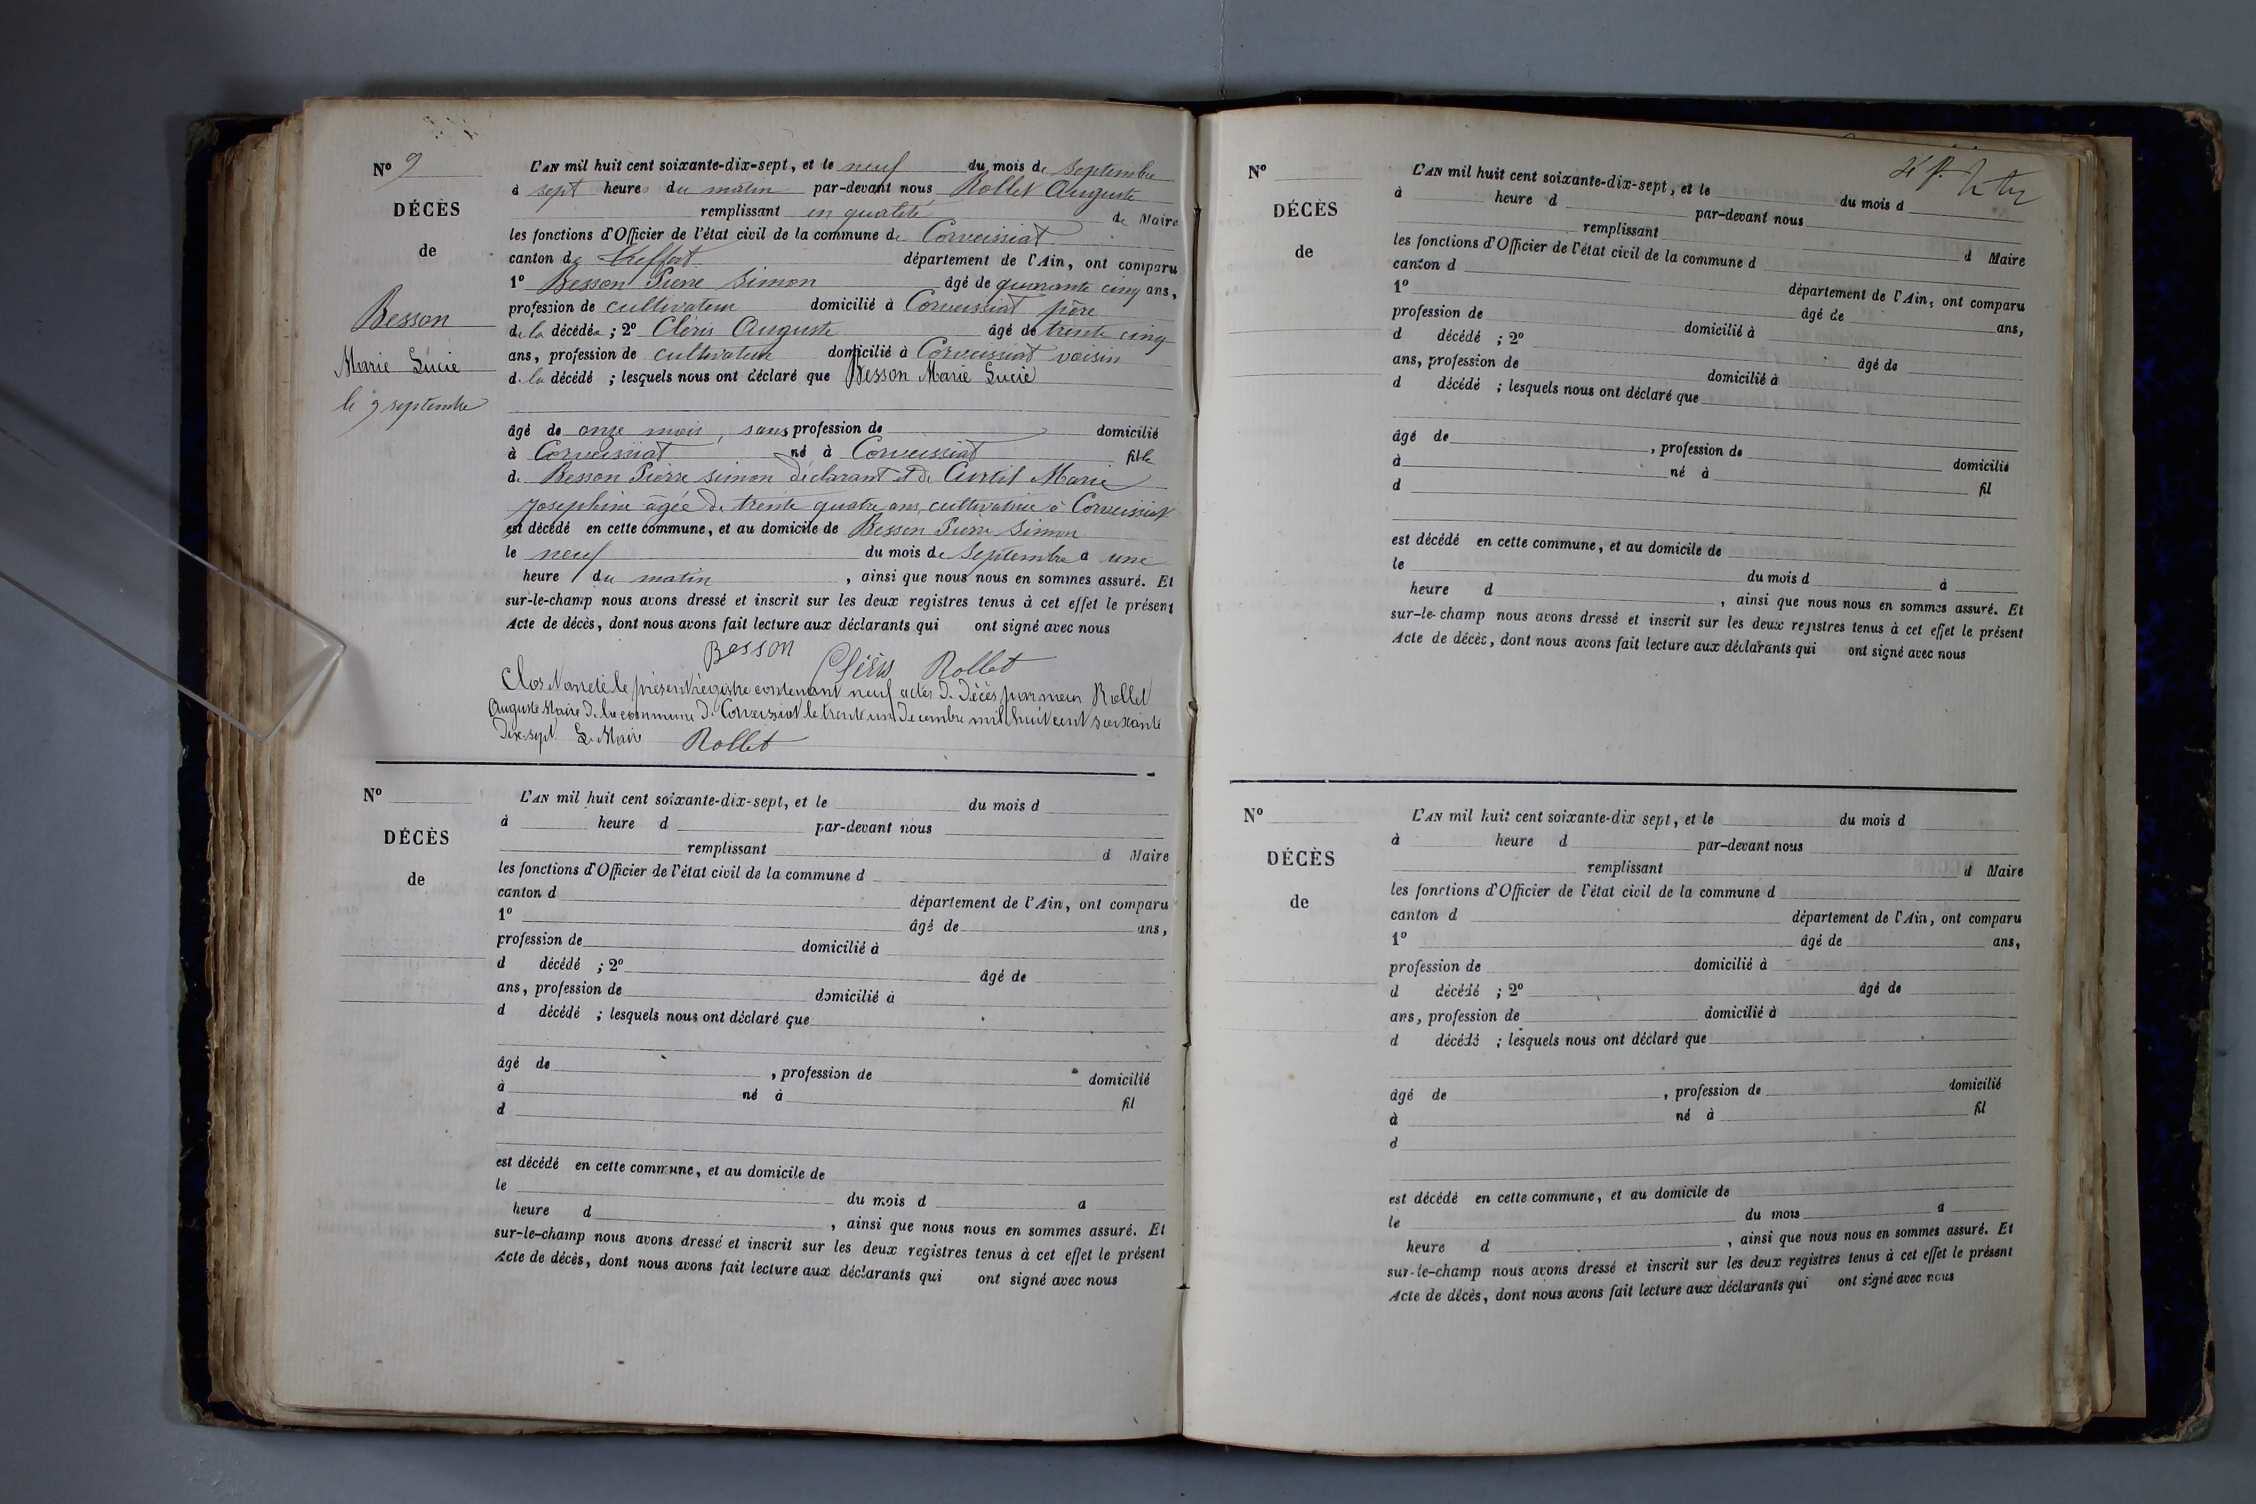 Nº 9
DÉCÈS
de
Besson
Marie Lucie
le 9 septembre
L'AN mil huit cent soixante-dix-sept, et le neuf du mois de septembre
à sept heures du matin par-devant nous Rollet Auguste
remplissant en qualité de Maire
les fonctions d'Officier de l'état civil de la commune de Corveissiat
canton de Treffort département de l'Ain, ont comparu
1º Besson Pierre Simon âgé de quarante cinq ans,
profession de cultivateur domicilié à Corveissiat père
de la décédée ; 2º Cléris Auguste âgé de trente cinq
ans, profession de cultivateur domicilié à Corveissiat voisin
de la décédé ; lesquels nous ont déclaré que Besson Marie Lucie
âgé de onze mois, sans profession de domicilié
à Corveissiat né à Corveissiat fille
de Besson Pierre Simon déclarant et de Curtil Marie
Josephine âgée de trente quatre ans, cultivatrice à Corveissiat
est décédé en cette commune, et au domicile de Besson Pierre Simon
le neuf du mois de septembre à une
heure du matin , ainsi que nous nous en sommes assuré. Et
sur-le-champ nous avons dressé et inscrit sur les deux registres tenus à cet effet le présent
Acte de décès, dont nous avons fait lecture aux déclarants qui ont signé avec nous
Besson
Cléris Rollet
Clos et arrêté le présent régistre contenant neuf actes de décès par nous Rollet
Auguste Maire de la commune de Corveissiat le trente un decembre mil huit cent soixante
dix-sept Le Maire Rollet
Nº
DÉCÈS
de
L'AN mil huit cent soixante-dix-sept, et le du mois d
à heure d par-devant nous
remplissant d Maire
les fonctions d'Officier de l'état civil de la commune d
canton d département de l'Ain, ont comparu
1º âgé de ans,
profession de domicilié à
d décédé ; 2º âgé de
ans, profession de domicilié à
d décédé ; lesquels nous ont déclaré que
âgé de , profession de domicilié
à né à fil
d
est décédé en cette commune, et au domicile de
le du mois d à
heure d , ainsi que nous nous en sommes assuré. Et
sur-le-champ nous avons dressé et inscrit sur les deux registres tenus à cet effet le présent
Acte de décès, dont nous avons fait lecture aux déclarants qui ont signé avec nous
Nº
DÉCÈS
de
L'AN mil huit cent soixante-dix-sept, et le du mois d
à heure d par-devant nous
remplissant d Maire
les fonctions d'Officier de l'état civil de la commune d
canton d département de l'Ain, ont comparu
1º âgé de ans,
profession de domicilié à
d décédé ; 2º âgé de
ans, profession de domicilié à
d décédé ; lesquels nous ont déclaré que
âgé de , profession de domicilié
à né à fil
d
est décédé en cette commune, et au domicile de
le du mois d à
heure d , ainsi que nous nous en sommes assuré. Et
sur-le-champ nous avons dressé et inscrit sur les deux registres tenus à cet effet le présent
Acte de décès, dont nous avons fait lecture aux déclarants qui ont signé avec nous
Nº
DÉCÈS
de
L'AN mil huit cent soixante-dix sept, et le du mois d
à heure d par-devant nous
remplissant d Maire
les fonctions d'Officier de l'état civil de la commune d
canton d département de l'Ain, ont comparu
1º âgé de ans,
profession de domicilié à
d décédé ; 2º âgé de
ans, profession de domicilié à
d décédé ; lesquels nous ont déclaré que
âgé de , profession de domicilié
à né à fil
d
est décédé en cette commune, et au domicile de
le du mois à
heure d , ainsi que nous nous en sommes assuré. Et
sur-le-champ nous avons dressé et inscrit sur les deux registres tenus à cet effet le présent
Acte de décès, dont nous avons fait lecture aux déclarants qui ont signé avec nous